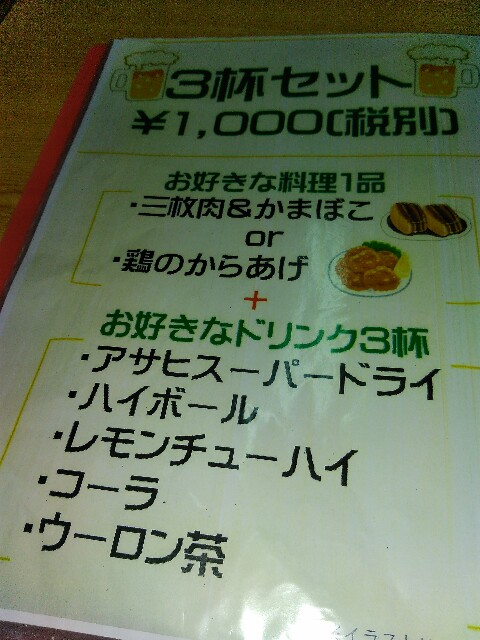 3杯セット
¥1,000(税別)
お好きな料理1品
・三枚肉&かまぼこ
or
・鶏のからあげ
+
お好きなドリンク3杯
・アサヒスーパードライ
・ハイボール
・レモンチューハイ
・コーラ
・ウーロン茶
※イラスト